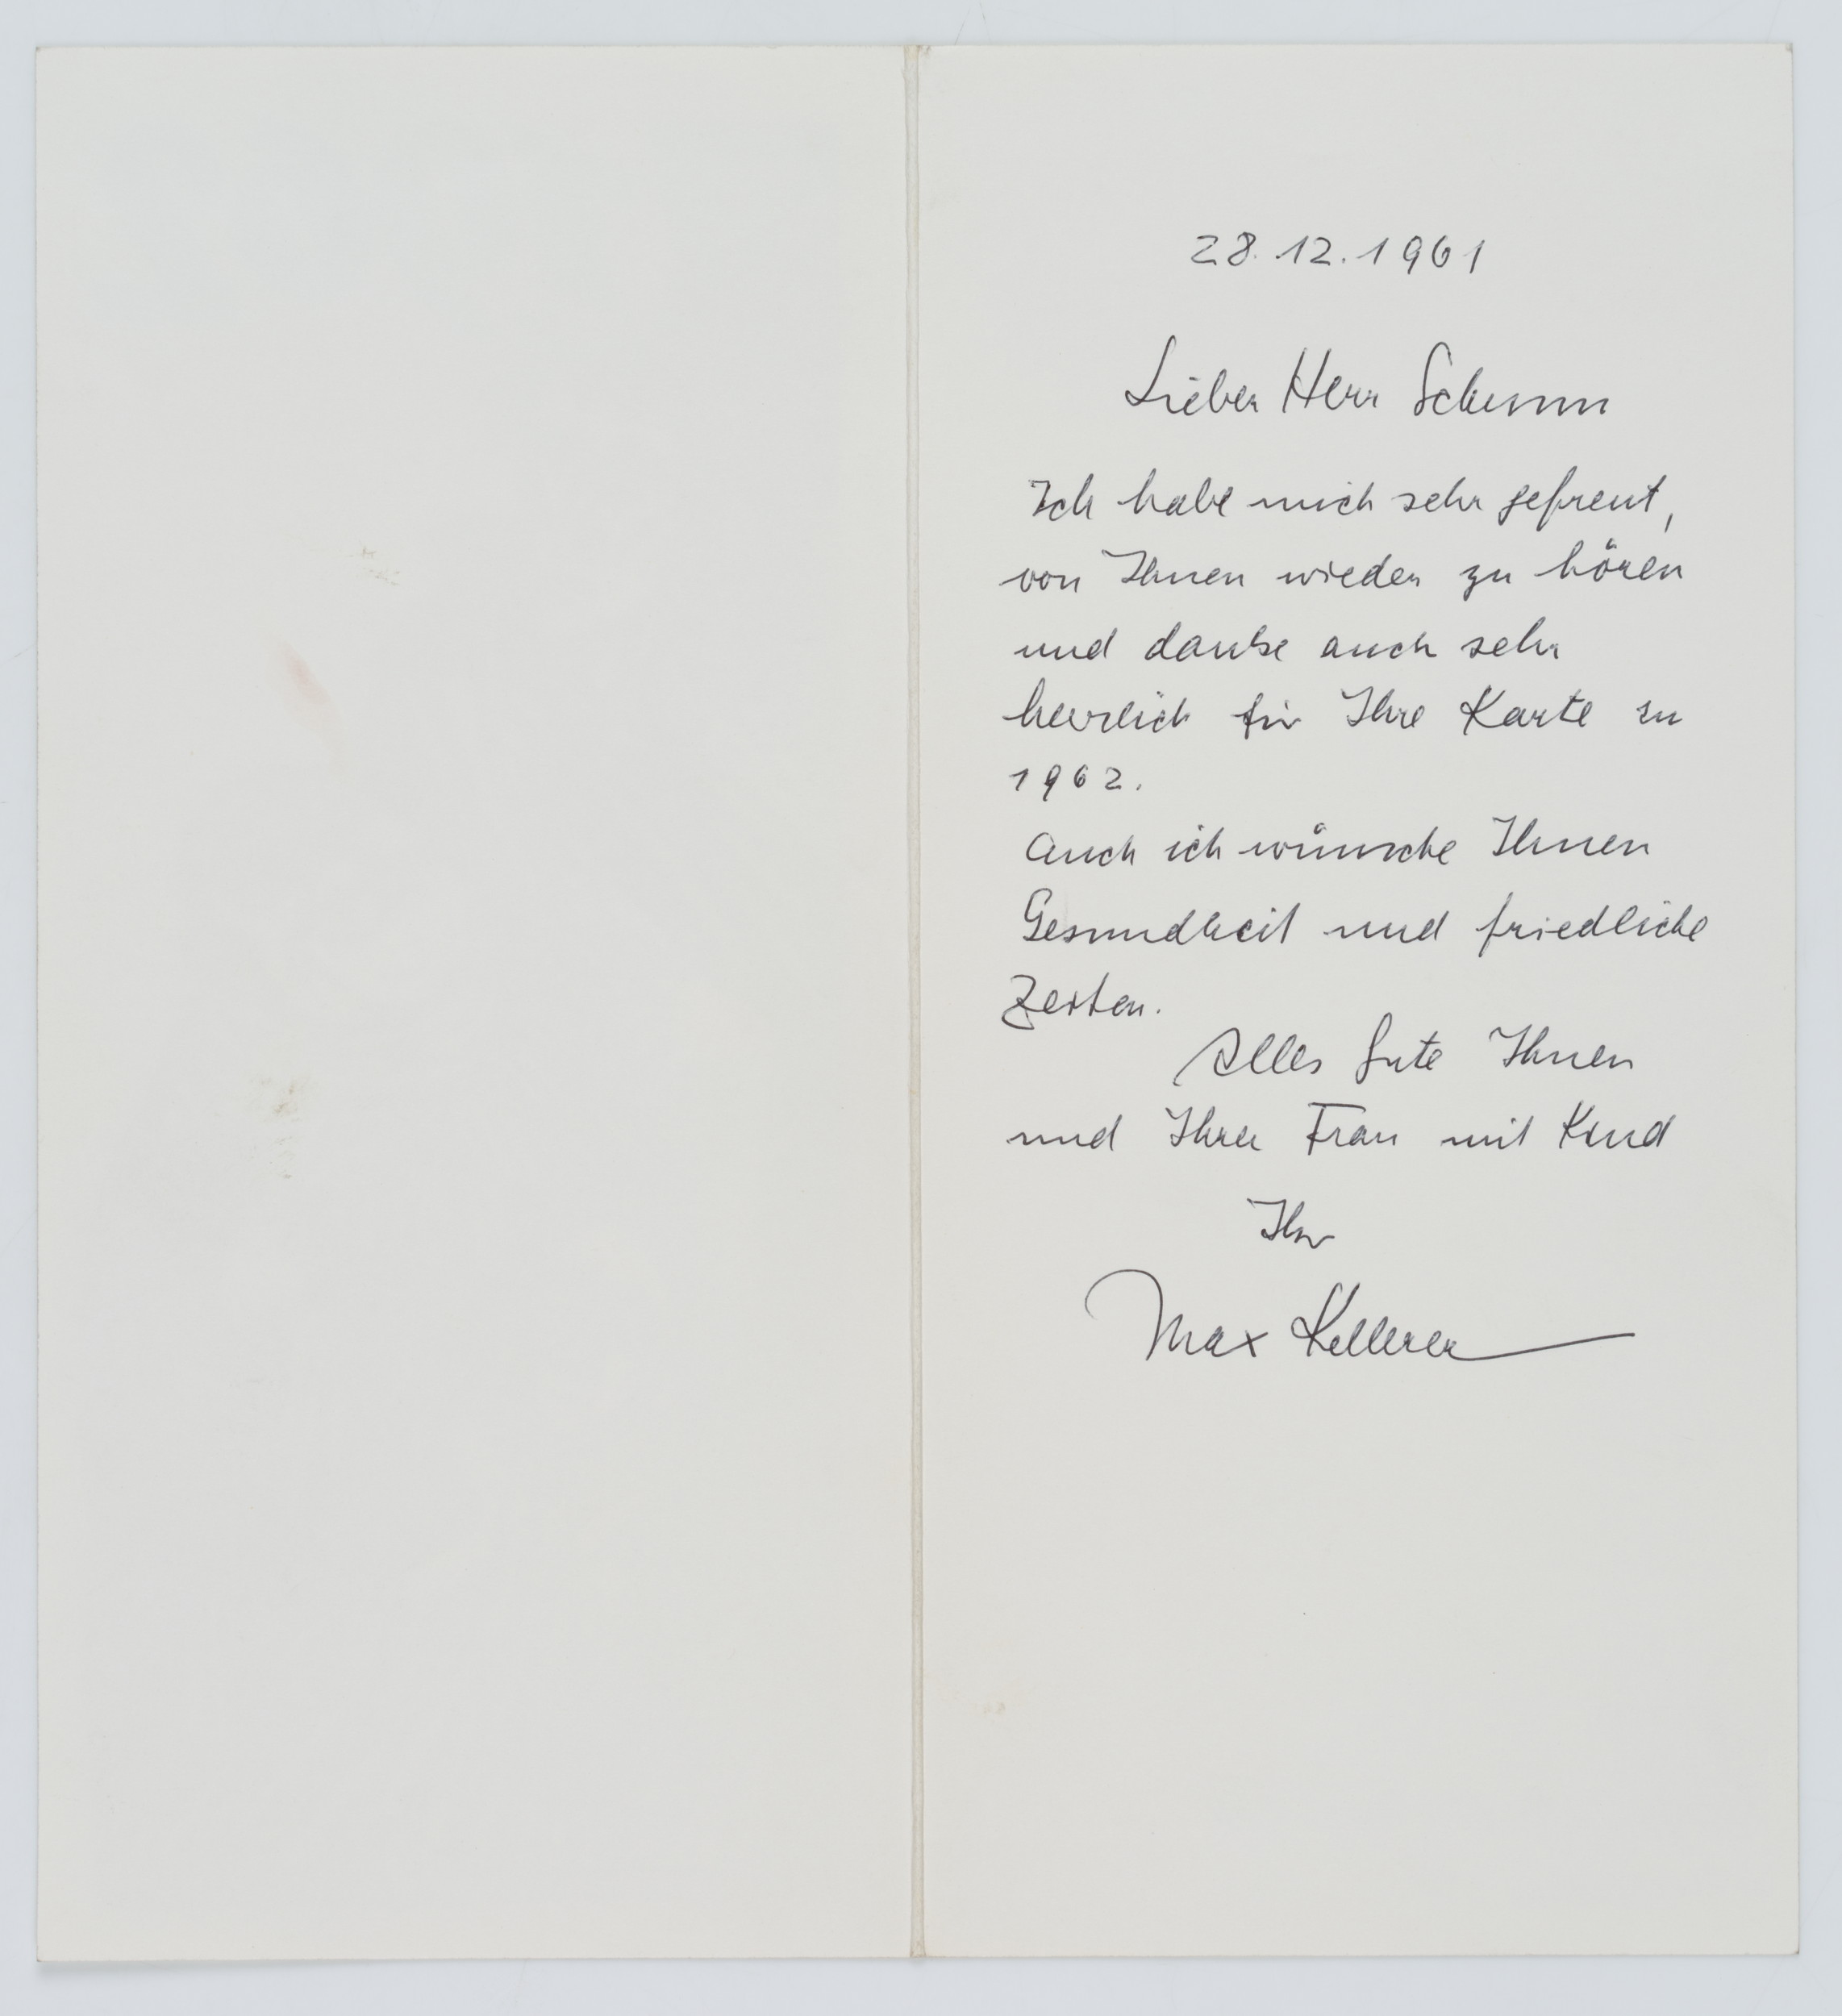 28.12.1961
Lieber Herr Schumm
Ich habe mich sehr gefreut,
von Ihnen wieder zu hören
und danke auch sehr
herzlich für Ihre Karte zu
1962.
Auch ich wünsche Ihnen
Gesundheit und friedliche
Zeiten.
Alles Gute Ihnen
und Ihrer Frau mit Kind
Ihr
Max Kellerer